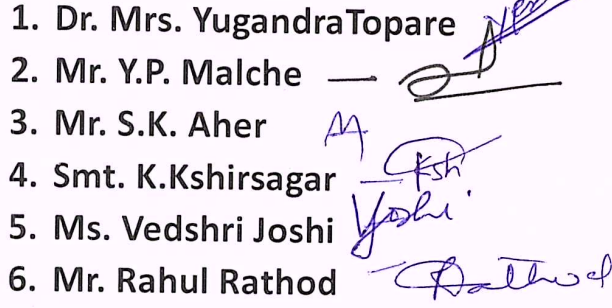 1. Dr. Mrs. YugandraTopare
2. Mr. Y.P. Malche —
3. Mr. S.K. Aher
4. Smt. K.Kshirsagar — Ksh
5. Ms. Vedshri Joshi Joshi
6. Mr. Rahul Rathod - Rathod